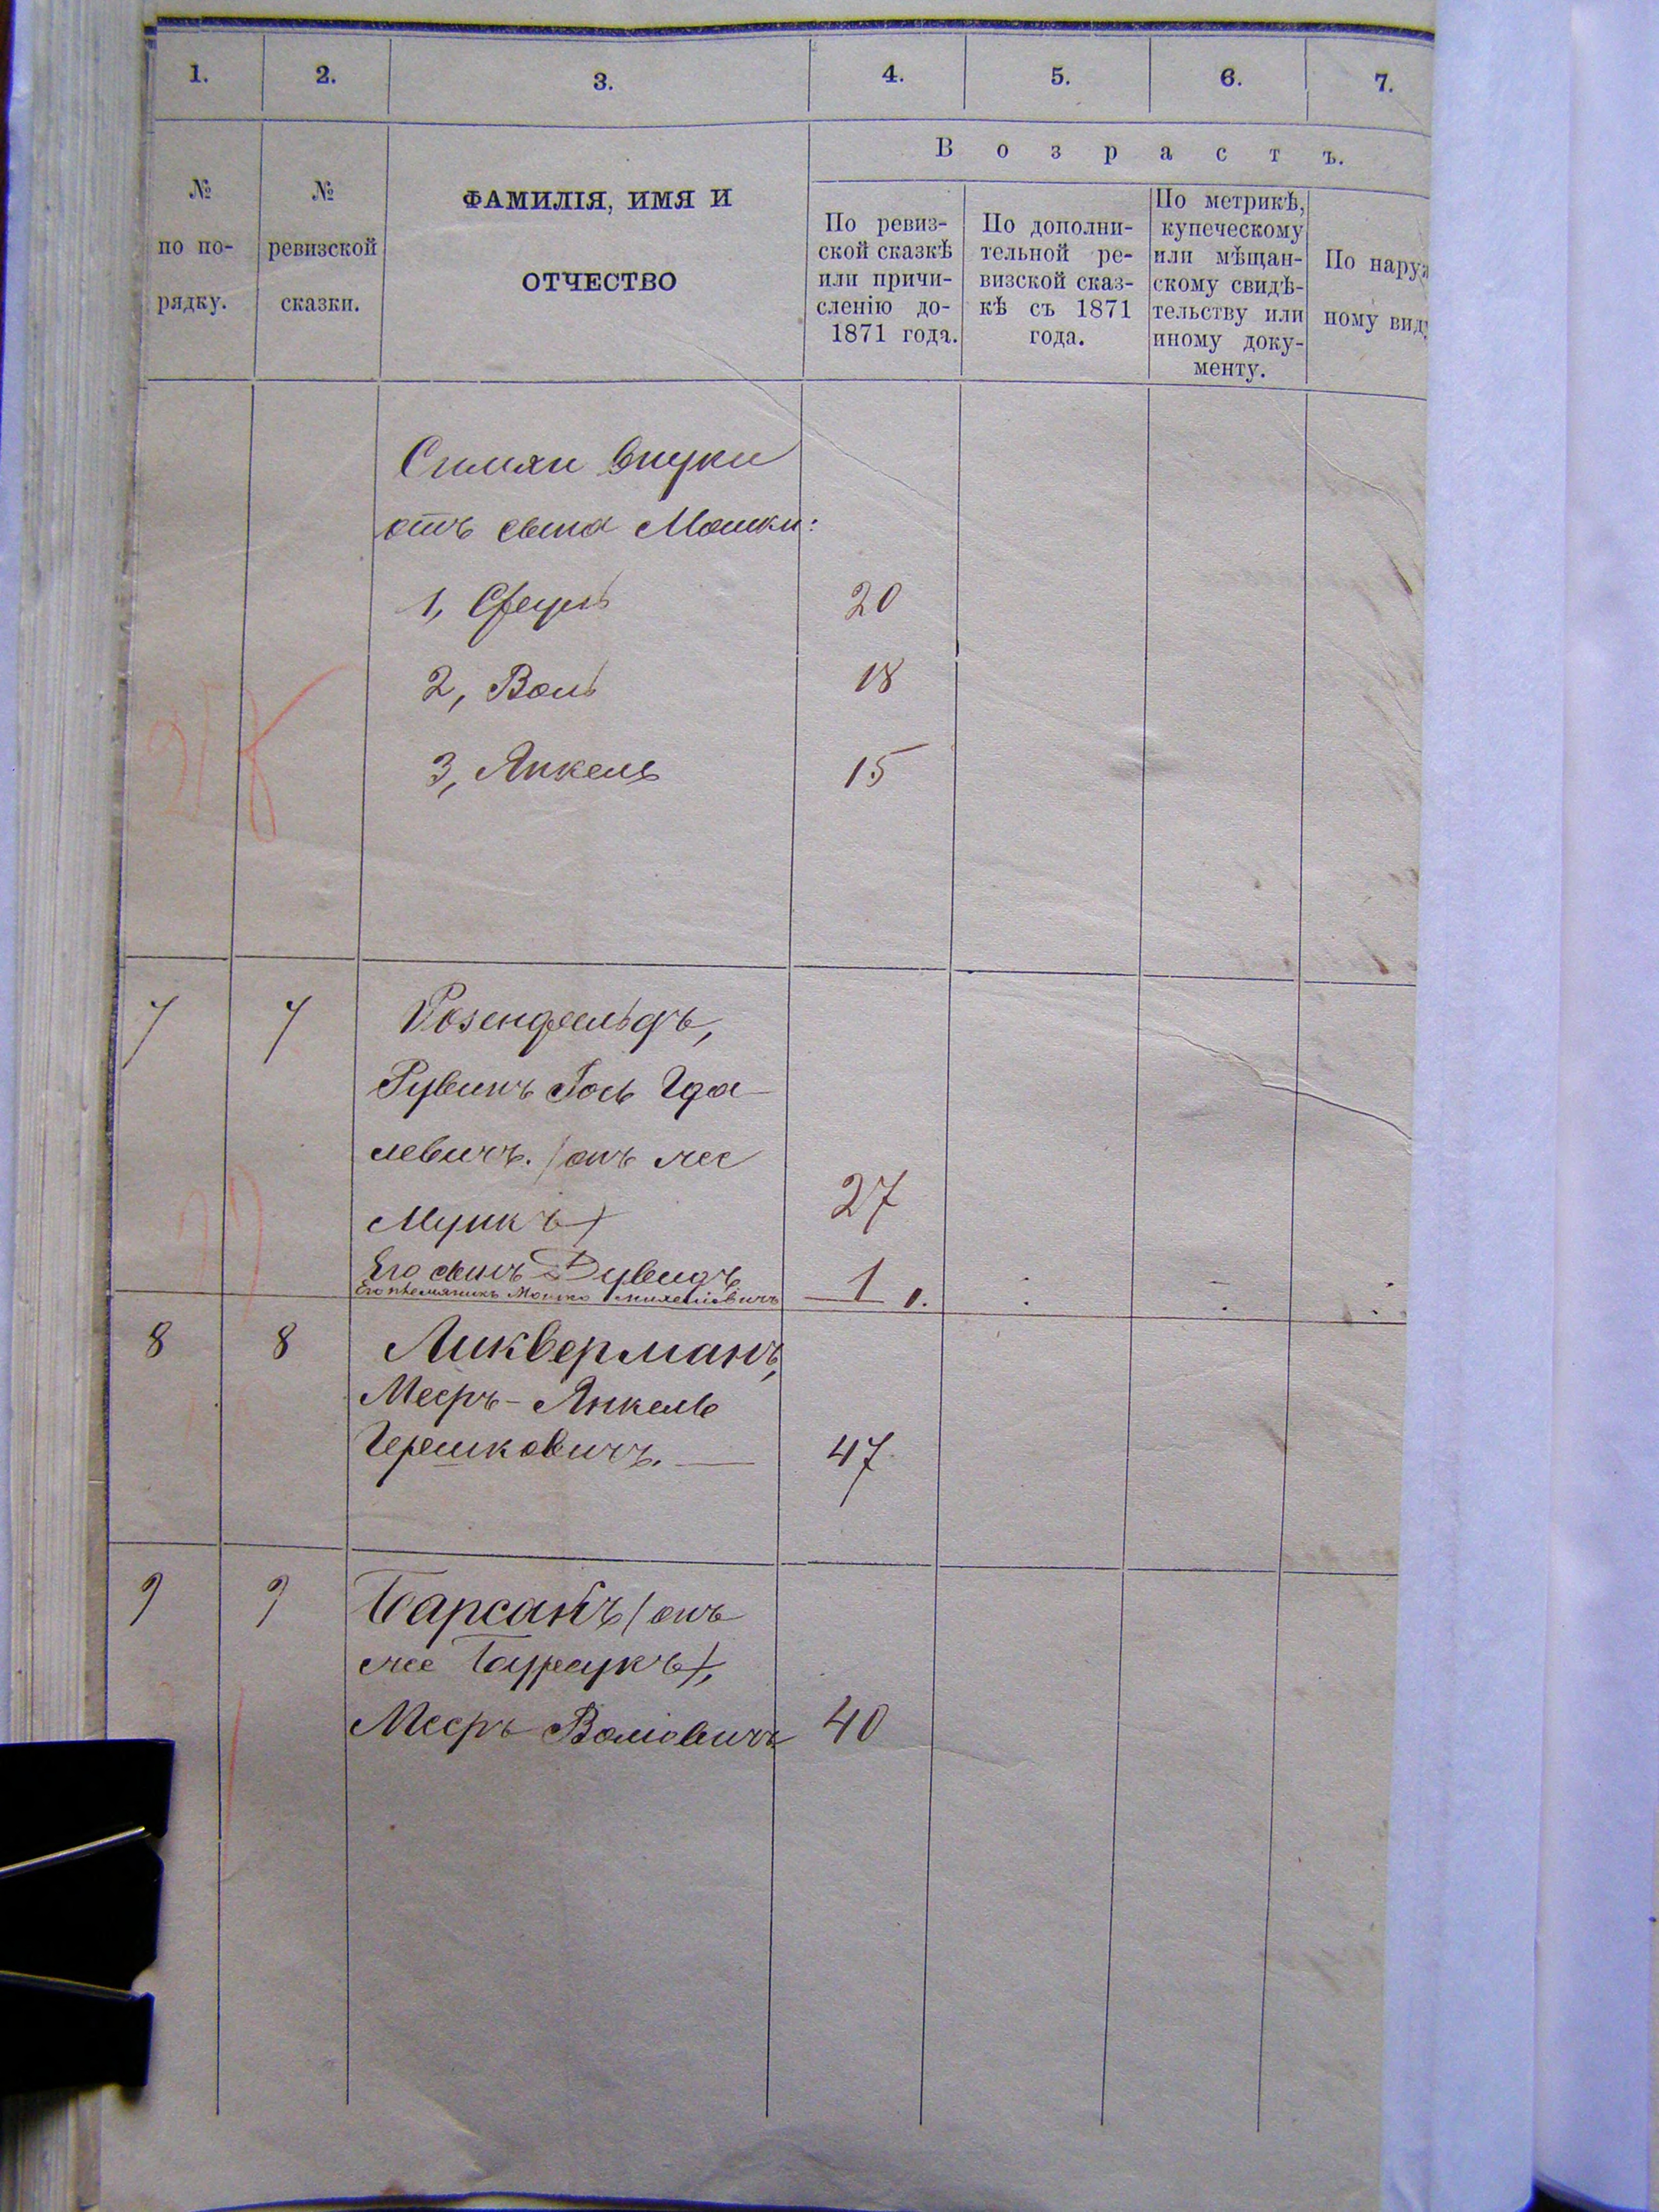 1. 2. 3. 4. 5. 6. 7.
№ по по-рядку.
№ ревизской сказки.
ФАМИЛІЯ, ИМЯ И
ОТЧЕСТВО
Возрастъ.
По ревиз-
ской сказкѣ
или причи-
сленію до-
1871 года.
По дополни-
тельной ре-
визской сказ-
кѣ съ 1871
года.
По метрикѣ,
купеческому
или мѣщан-
скому свидѣ-
тельству или
иному доку-
менту.
По наруж
ному виду
внуки
отъ сына Мошки:
1, Сруль 20
2, Воль 18
3, Янкель 15
7 7 Розенфельдъ,
Рувинъ Іось Гда-
левичъ. (онъ же
Мункъ) 27
Его сынъ Дувидъ 1
Его племяникъ Мошко 1.
8 8 Ликверманъ,
Мееръ-Янкель
Гершковичъ. 47
9 9 Барсакъ (онъ
же
Мееръ Воліовичъ 40